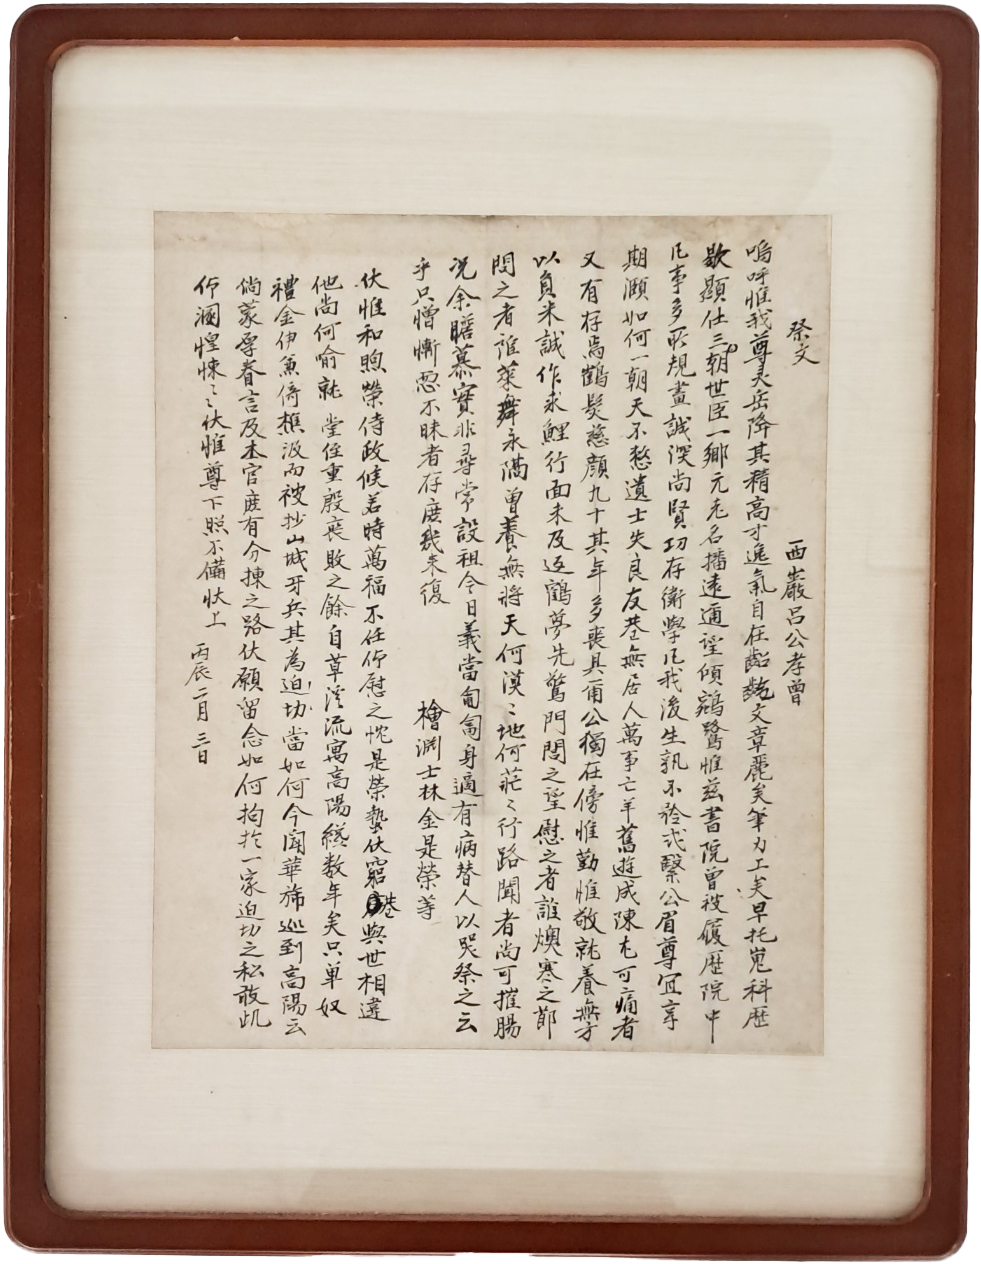 祭文
西巖呂公孝曾
嗚呼惟我尊灵岳降其精高才逸氣自在齠齔文章麗矣筆力工矣早托嵬科歷
歇顯仕三朝世臣一鄉元老名播遠邇望傾鵷鷺惟茲書院曾被履歷院中
凡事多所規畫誠深尚賢功存衛學凡我後生孰不矜式繄公眉尊冝享
期濒如何一朝天不憗遺士失良友巷無居人萬事亡羊舊遊成陳尤可痛者
又有存焉鶴髮慈顔九十其年多喪具甫公獨在傍惟勤惟敬就養無方
以負米誠作求鯉行面未及返鶴夢先驚門閭之望慰之者誰燠寒之節
問之者誰萊舞永隔曾養無將天何漠〻地何茫〻行路聞者尚可摧腸
况余瞻慕實非尋常設祖今日義當匍匐身適有病替人以哭祭之云
乎只憎慚恧不昧者存庶我来復
檜淵士林金是榮等
伏惟和煦榮侍政候若時萬福不任仰慰之忱是榮蟄伏窮巷與世相違
他尚何喻就堂侄重殷喪敗之餘自草溪流寓高陽縂数年矣只單奴
禮金伊兼倚樵汲而被抄山城牙兵其為迫切當如何今聞華旆巡到高陽云
倘蒙厚眷言及本官庶有分揀之路伏願留念如何拘於一家迫切之私敢此
仰溷惶悚〻伏惟尊下照不備狀上
丙辰二月三日